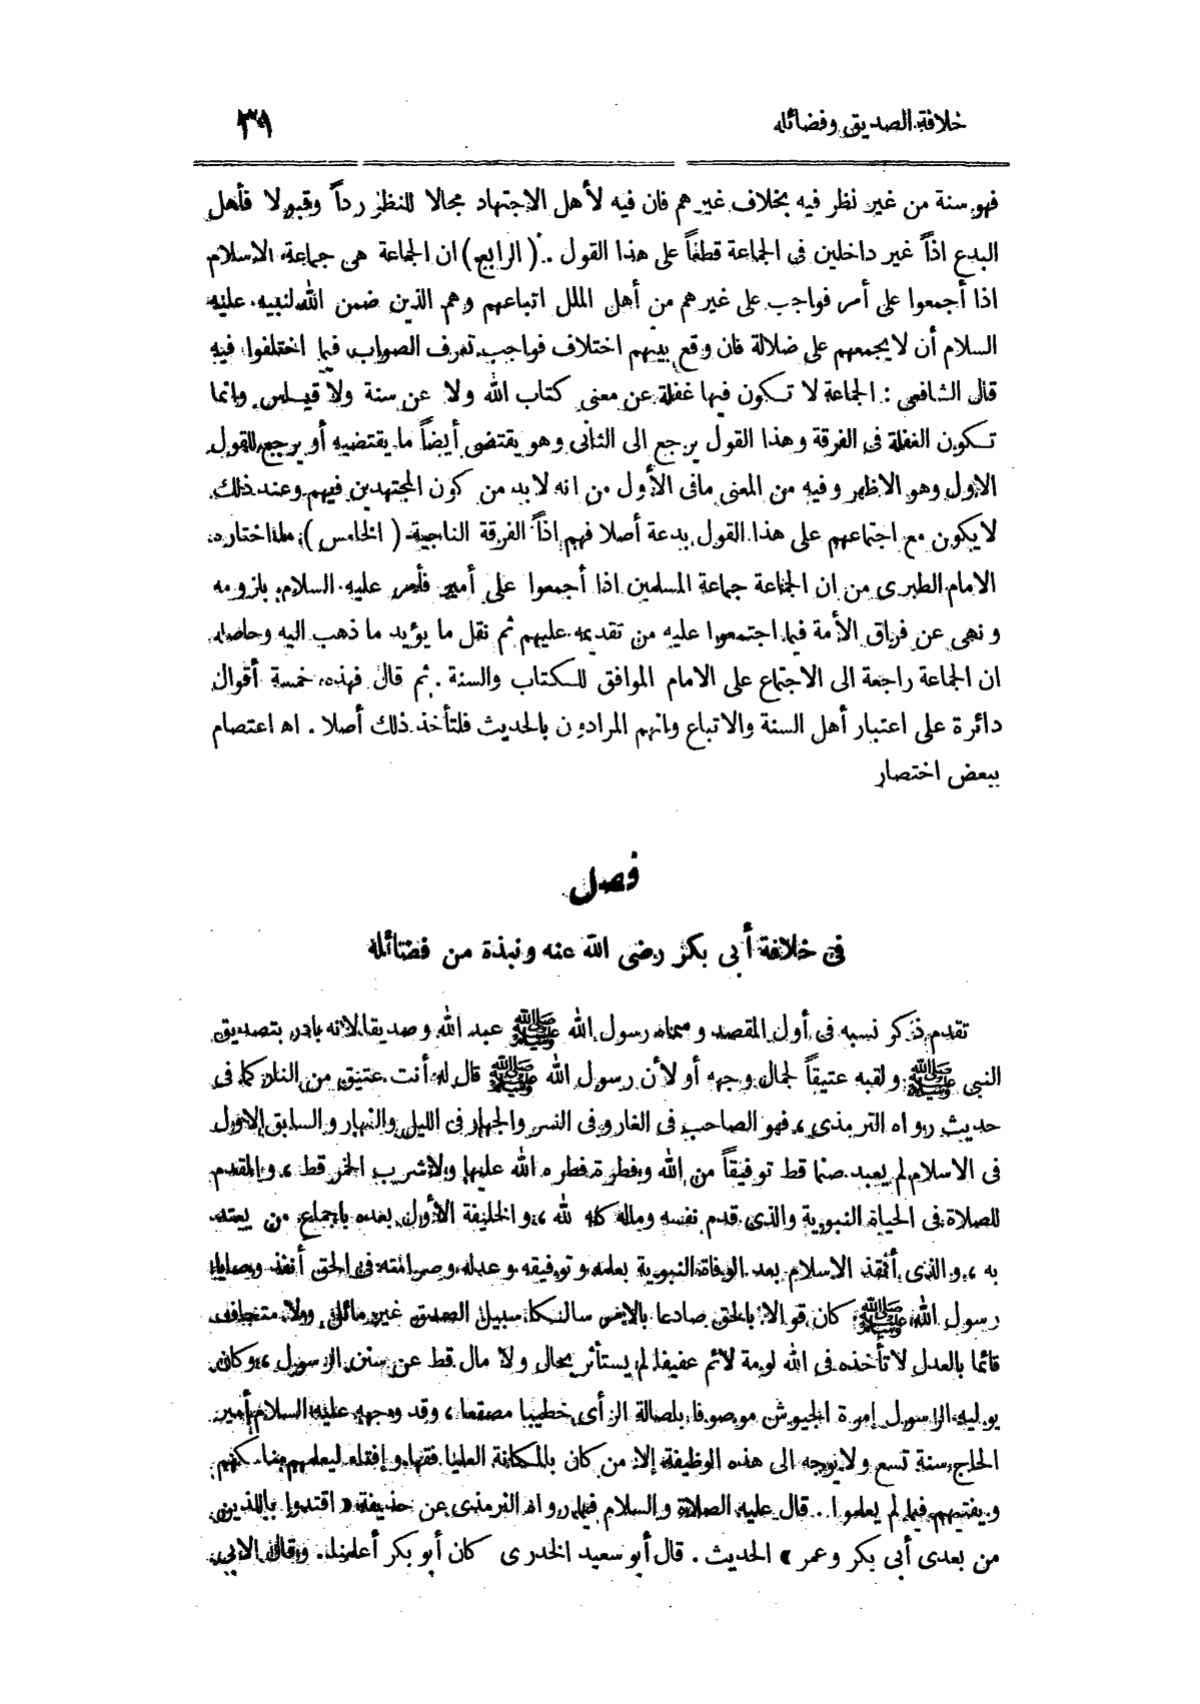 خلافة الصديق وفضائله
٣٩
فهو سنة من غير نظر فيه بخلاف غيرهم فان فيه لأهل الاجتهاد مجالا للنظر رداً وقبولا فأهل
البدع اذاً غير داخلين فى الجماعة قطعاً على هذا القول . ( الرابع ) ان الجماعة هى جماعة الاسلام
اذا أجمعوا على أمر فواجب على غيرهم من أهل الملل اتباعهم وهم الذين ضمن الله لنبيه عليه
السلام أن لا يجمعهم على ضلالة فان وقع بينهم اختلاف فواجب تعرف الصواب فيما اختلفوا فيه
قال الشافعى : الجماعة لا تكون فيها غفلة عن معنى كتاب الله ولا عن سنة ولا قياس وانما
تكون الغفلة فى الفرقة وهذا القول يرجع الى الثانى وهو يقتضى أيضاً ما يقتضيه أو يرجع للقول
الاول وهو الاظهر وفيه من المعنى مافى الأول من انه لابد من كون المجتهدين فيهم وعند ذلك
لا يكون مع اجتماعهم على هذا القول بدعة أصلا فهم اذاً الفرقة الناجية ( الخامس ) ما اختاره
الامام الطبرى من ان الجماعة جماعة المسلمين اذا أجمعوا على أمير فأمر عليه السلام بلزومه
ونهى عن فراق الأمة فيما اجتمعوا عليه من تقديمه عليهم ثم نقل ما يؤيد ما ذهب اليه وحاصله
ان الجماعة راجعة الى الاجتماع على الامام الموافق للكتاب والسنة . ثم قال فهذه خمسة أقوال
دائرة على اعتبار أهل السنة والاتباع وانهم المرادون بالحديث فلتأخذ ذلك أصلا . اه اعتصام
ببعض اختصار
فصل
فى خلافة أبى بكر رضى الله عنه ونبذة من فضائله
تقدم ذكر نسبه فى أول المقصد وسماه رسول الله ﷺ عبد الله وصديقا لانه بادر بتصديق
النبى ﷺ ولقبه عتيقاً لجمال وجهه أو لأن رسول الله ﷺ قال له أنت عتيق من النار كما فى
حديث رواه الترمذى ، فهو الصاحب فى الغار وفى السر والجهار فى الليل والنهار والسابق الاول
فى الاسلام لم يعبد صنما قط توفيقاً من الله وفطرة فطره الله عليها ولا شرب الخمر قط ، والمقدم
للصلاة فى الحياة النبوية والذى قدم نفسه وماله كله لله ، والخليفة الأول بعده باجماع من يعتد
به ، والذى أنقذ الاسلام بعد الوفاة النبوية بعلمه وتوفيقه وعدله وصرامته فى الحق أنفذ وصايا
رسول الله ﷺ كان قوالا بالحق صادعا بالامر سالكا سبيل الصدق غير مائل ولا متجانف
قائما بالعدل لا تأخذه فى الله لومة لائم عفيفا لم يستأثر بحال ولا مال قط عن سنن الرسول ، وكان
يوليه الرسول إمرة الجيوش موصوفا بأصالة الرأى خطيبا مصقعا ، وقد وجهه عليه السلام أمير
الحاج سنة تسع ولا يوجه الى هذه الوظيفة إلا من كان بالمكانة العليا فقها وإفتاء ليعلمهم مناسكهم
ويفتيهم فيما لم يعلموا . قال عليه الصلاة والسلام فيما رواه الترمذى عن حذيفة « اقتدوا باللذين
من بعدى أبى بكر وعمر » الحديث . قال أبو سعيد الخدرى كان أبو بكر أعلمنا . وقال الابى